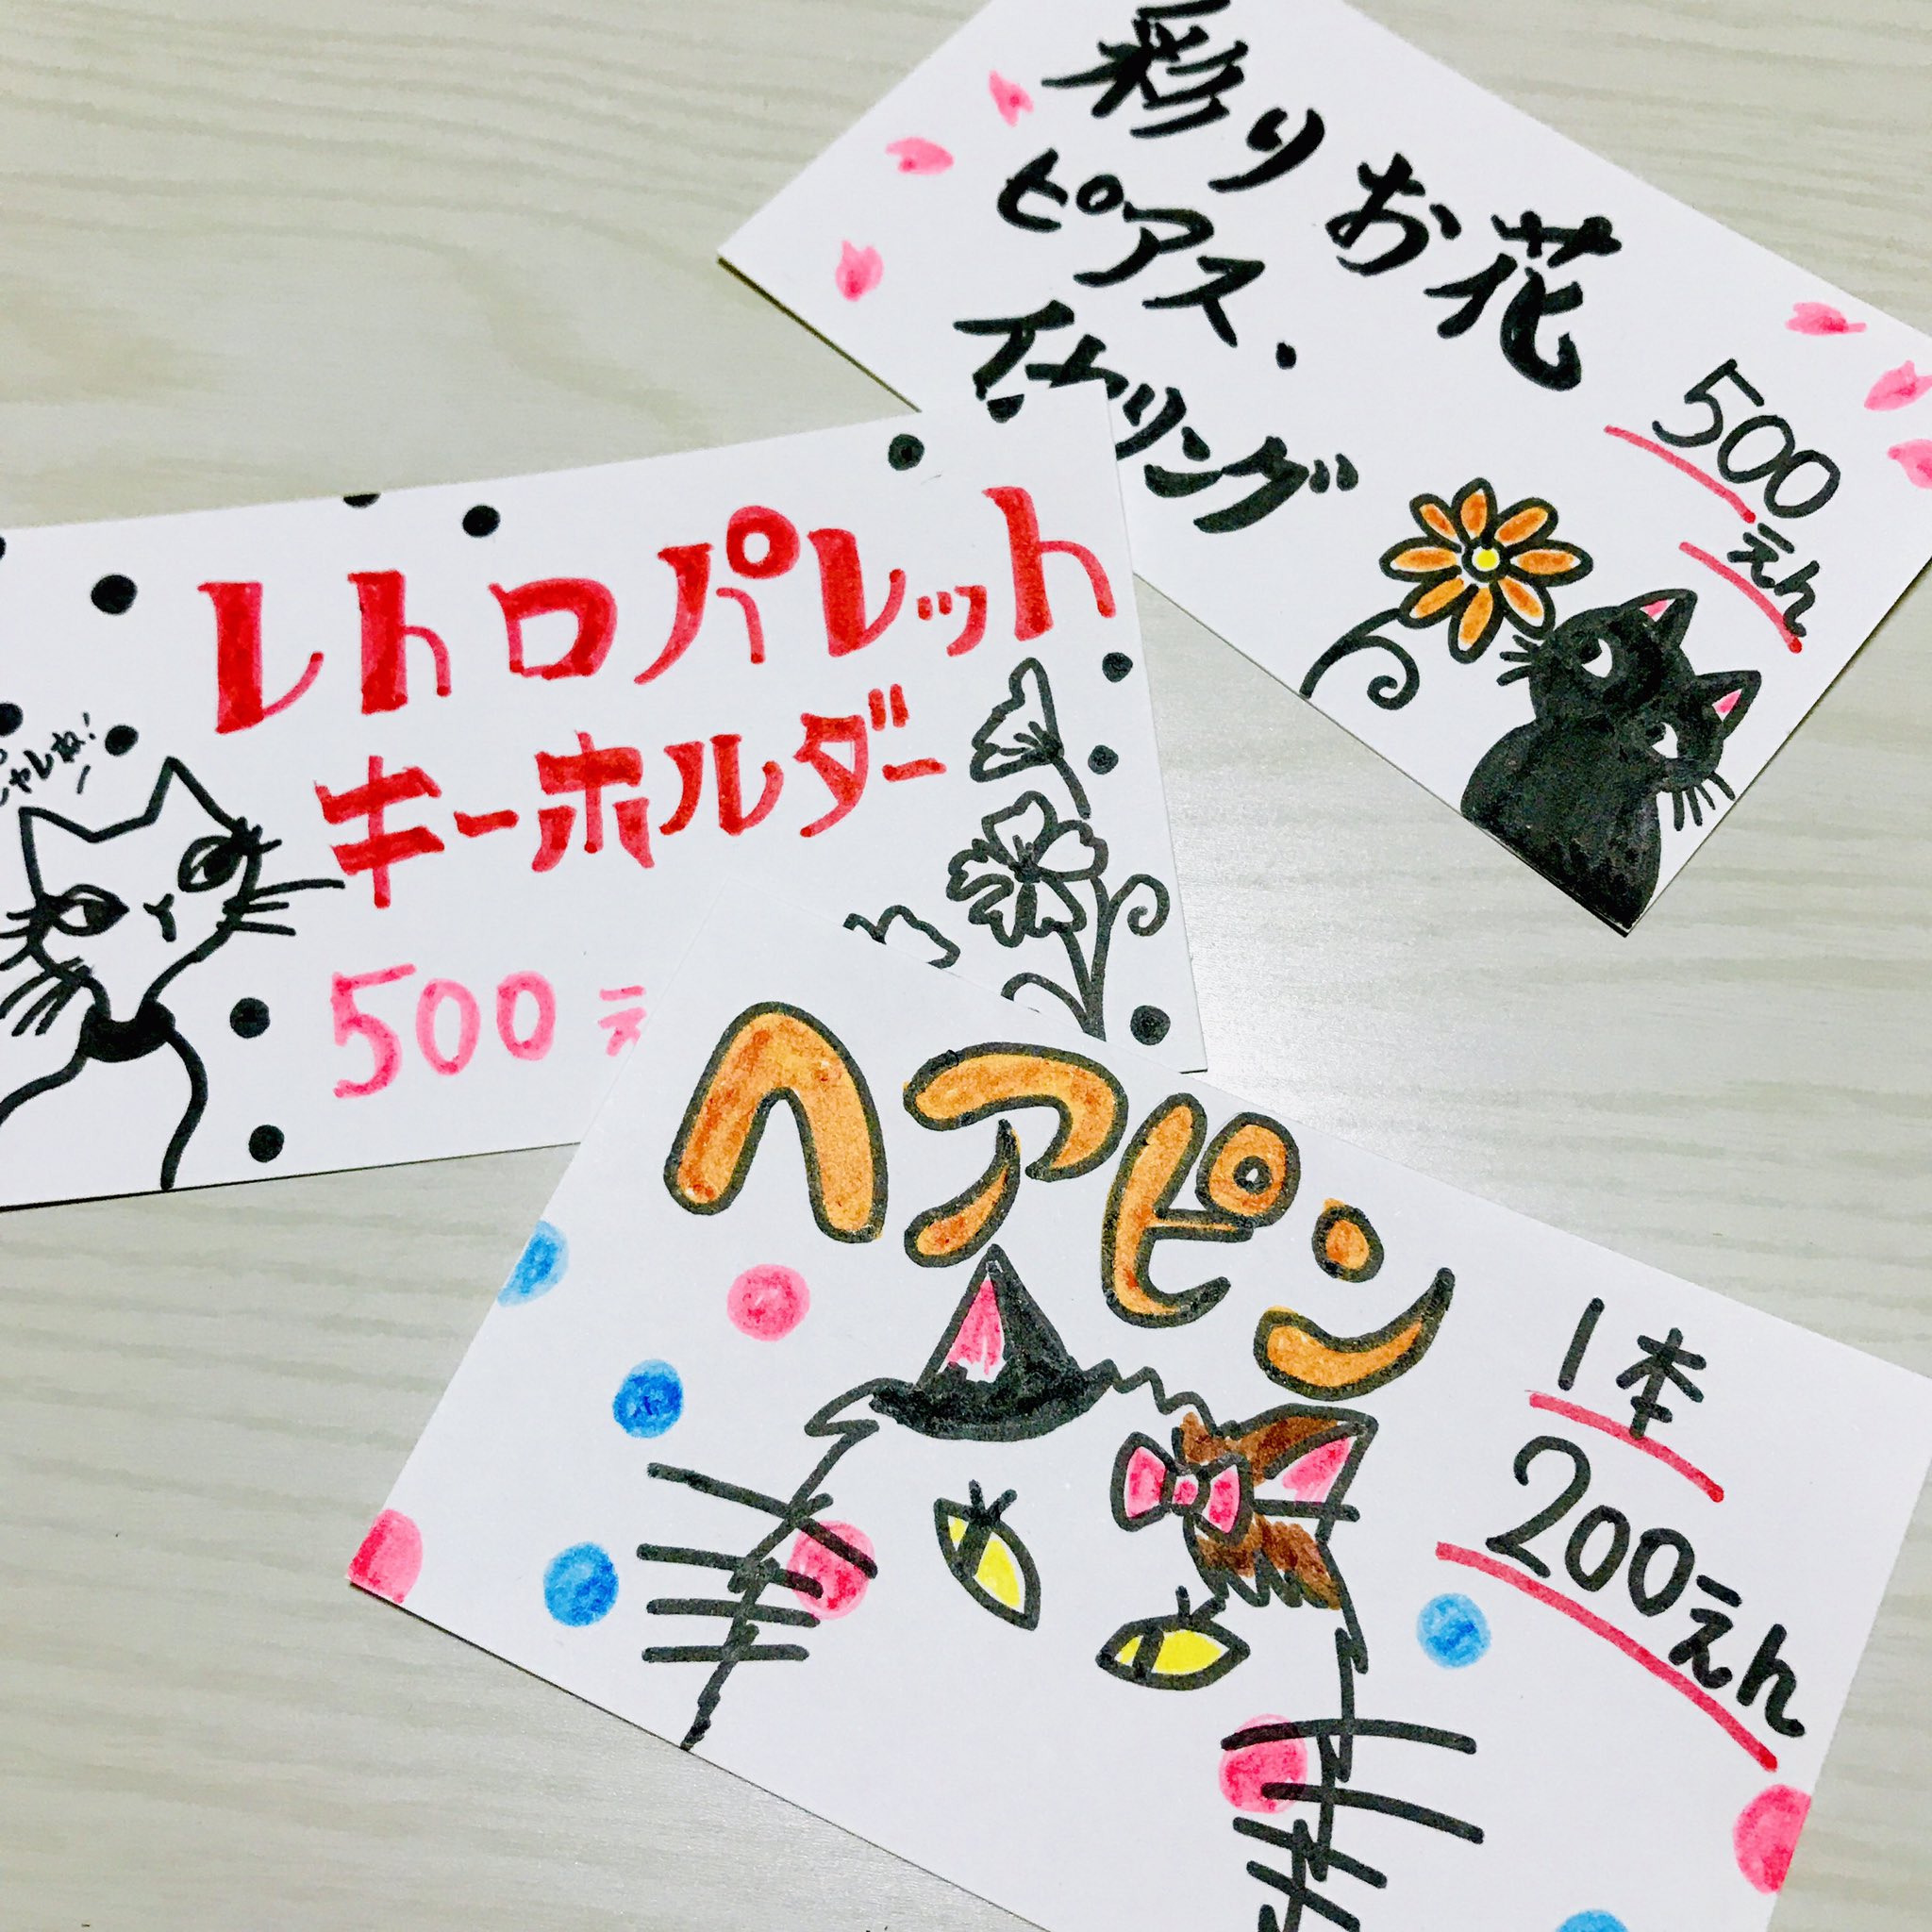 彩りお花
ピアス・
イヤリング
500
えん
レトロパレット
キーホルダー
500え
シャレね!
ヘアピン
1本
200えん